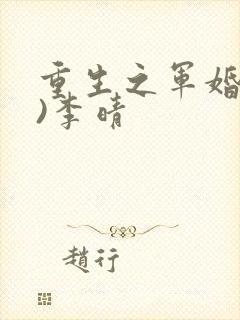 重生之军婚
)李晴
趙行